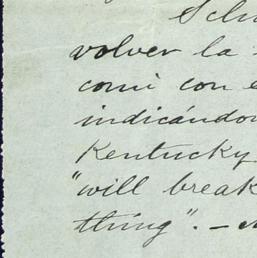 volver la
comí con
indicándo
Kentucky
"will break
thing". –